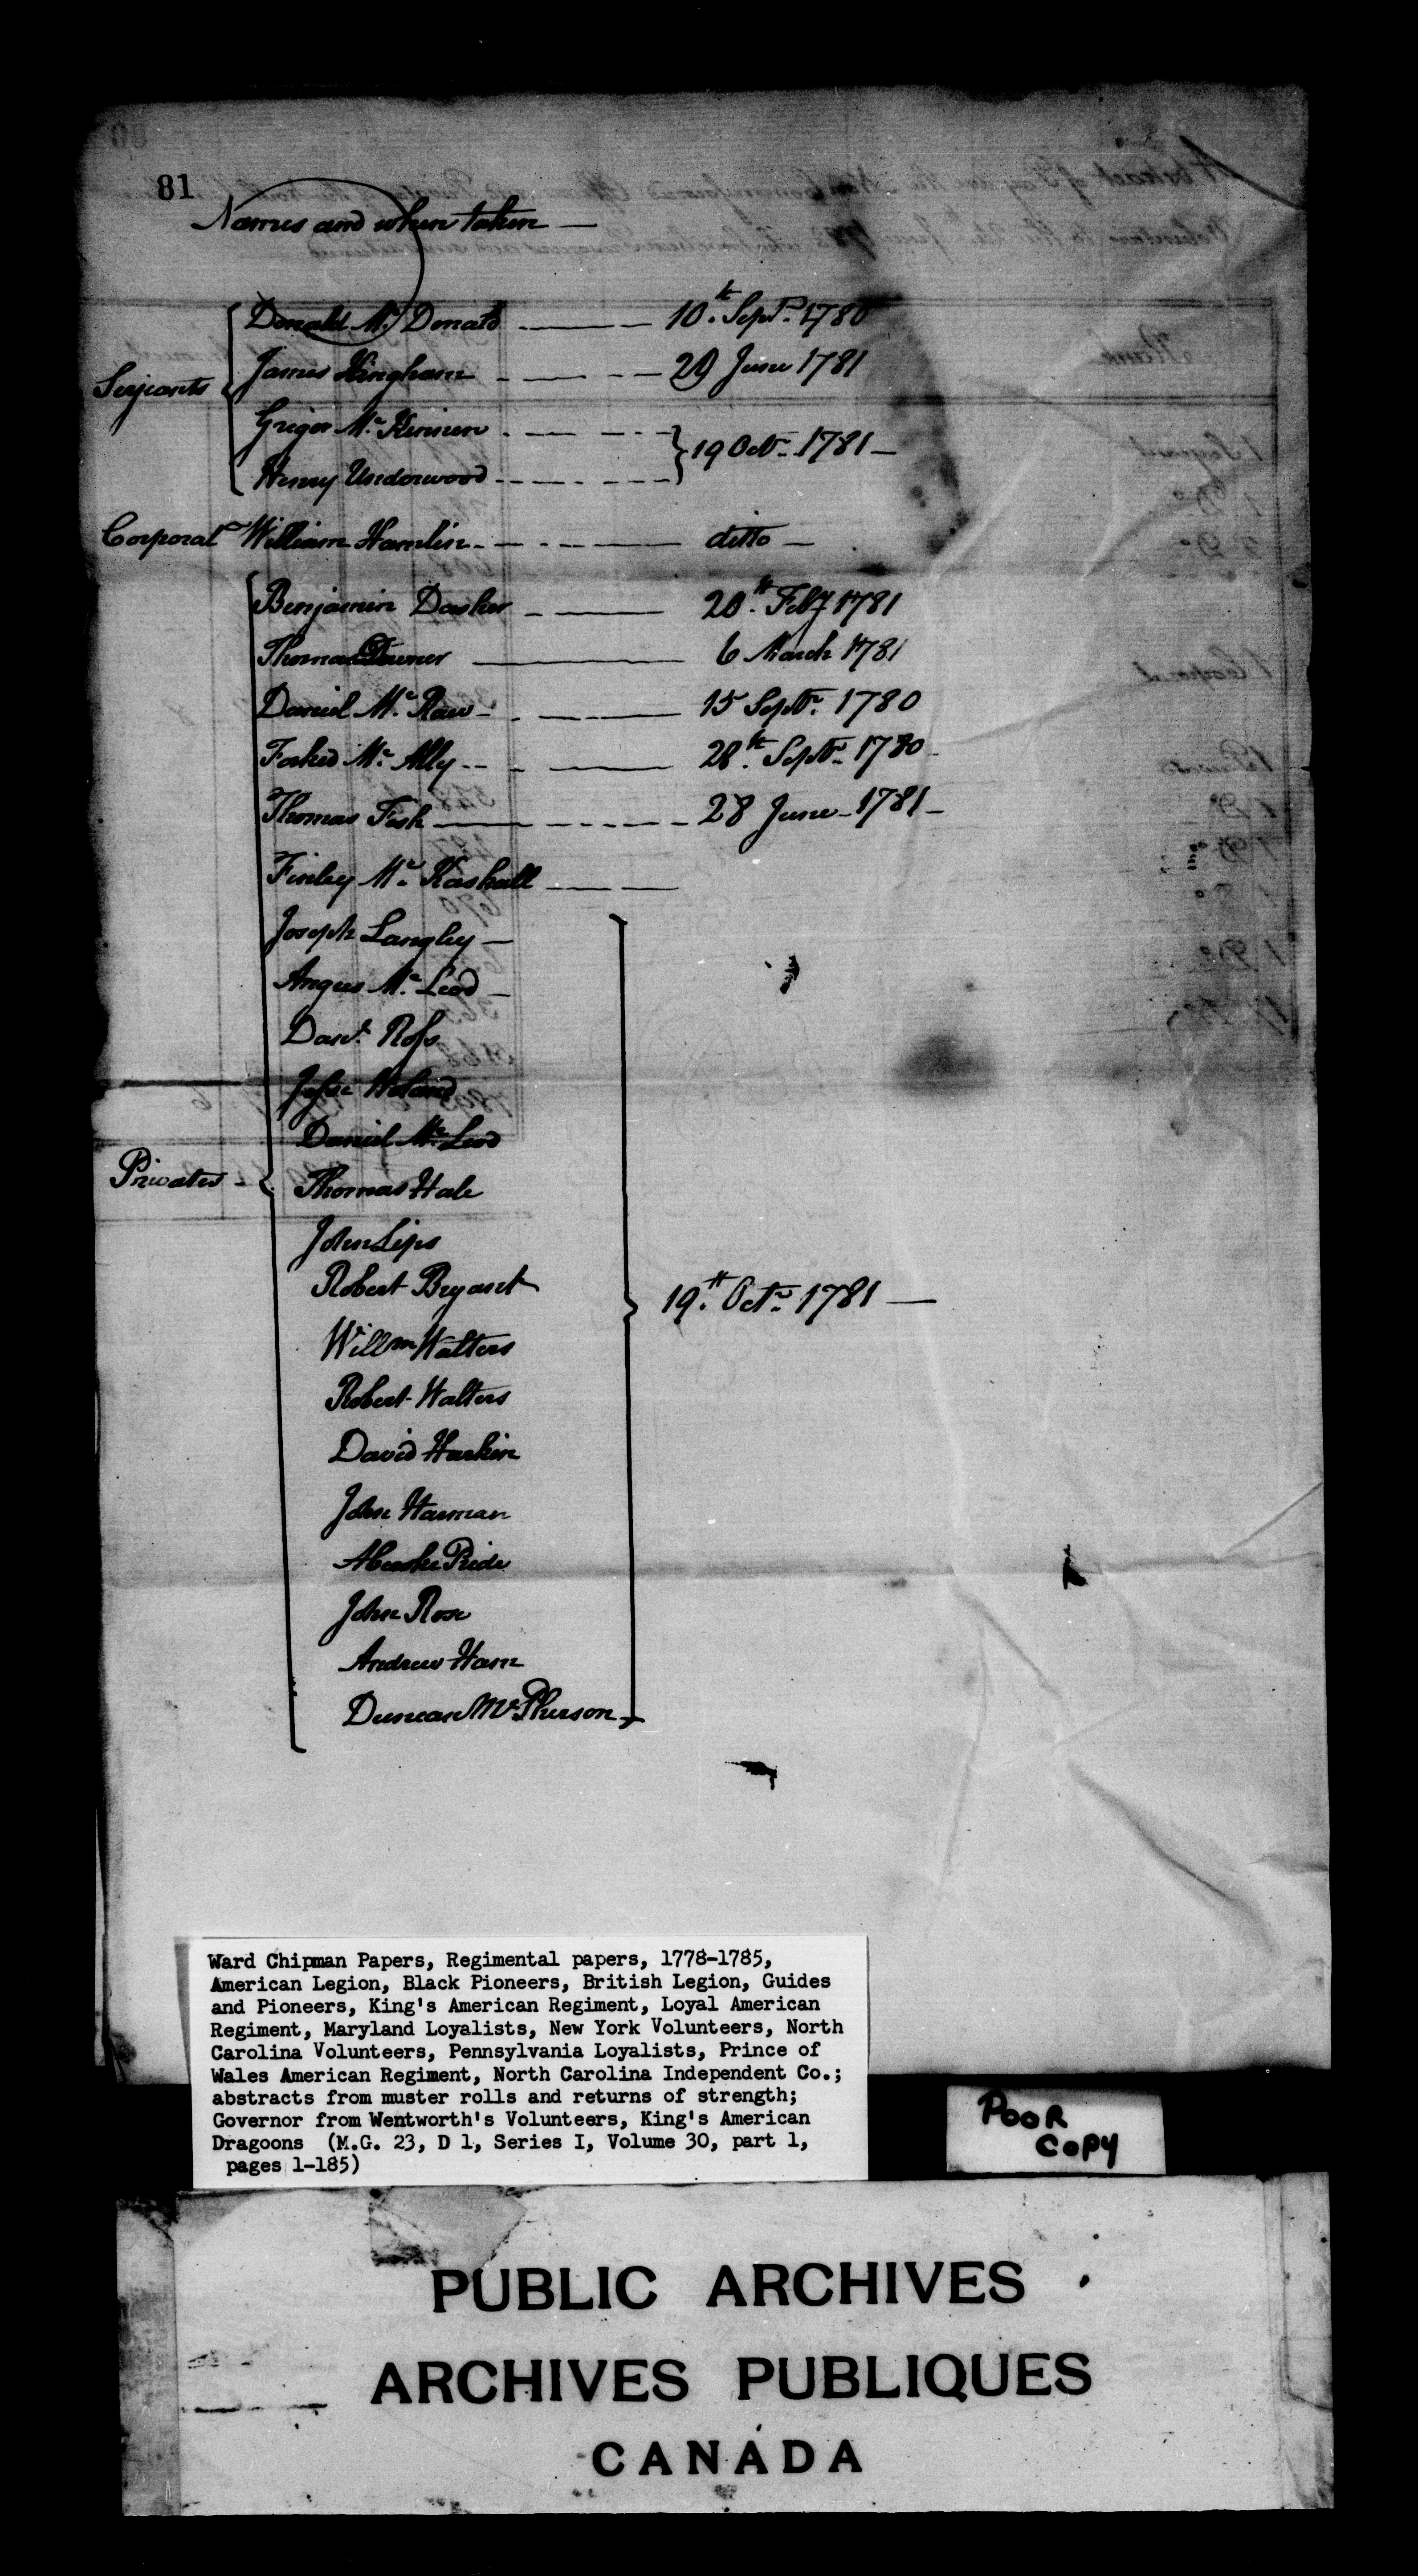 81
Names and when taken —
Serjeants
Donald Mc. Donald — 10th. Septr. 1780
James Kingham — 29 June 1781
Grigor Mc. Kinnen
Henry Underwood
19 Octr. 1781 —
Corporal William Hamlin — ditto —
Benjamin Dasher — 20th. Feby 1781
Thomas Downer — 6 March 1781
Daniel Mc. Raw — 15 Septr. 1780
Mc. Ally — 28th. Septr. 1780
Thomas Fish — 28 June 1781 —
Finley Mc. Kaskall —
Joseph Langley —
Angus Mc. Leod —
Davd. Ross
Jesse
Daniel Mc. Leod
Privates
Thomas Hale
John Lips
Robert Bryant
19th. Octr. 1781 —
Willm Walters
Robert Walters
David Harkin
John Harman
Pride
John Rose
Andrew Ham
Duncan Mc. Pherson
Ward Chipman Papers, Regimental papers, 1778-1785,
American Legion, Black Pioneers, British Legion, Guides
and Pioneers, King's American Regiment, Loyal American
Regiment, Maryland Loyalists, New York Volunteers, North
Carolina Volunteers, Pennsylvania Loyalists, Prince of
Wales American Regiment, North Carolina Independent Co.;
abstracts from muster rolls and returns of strength;
Governor from Wentworth's Volunteers, King's American
Dragoons (M.G. 23, D 1, Series I, Volume 30, part 1,
pages 1-185)
POOR
COPY
PUBLIC ARCHIVES
ARCHIVES PUBLIQUES
CANADA